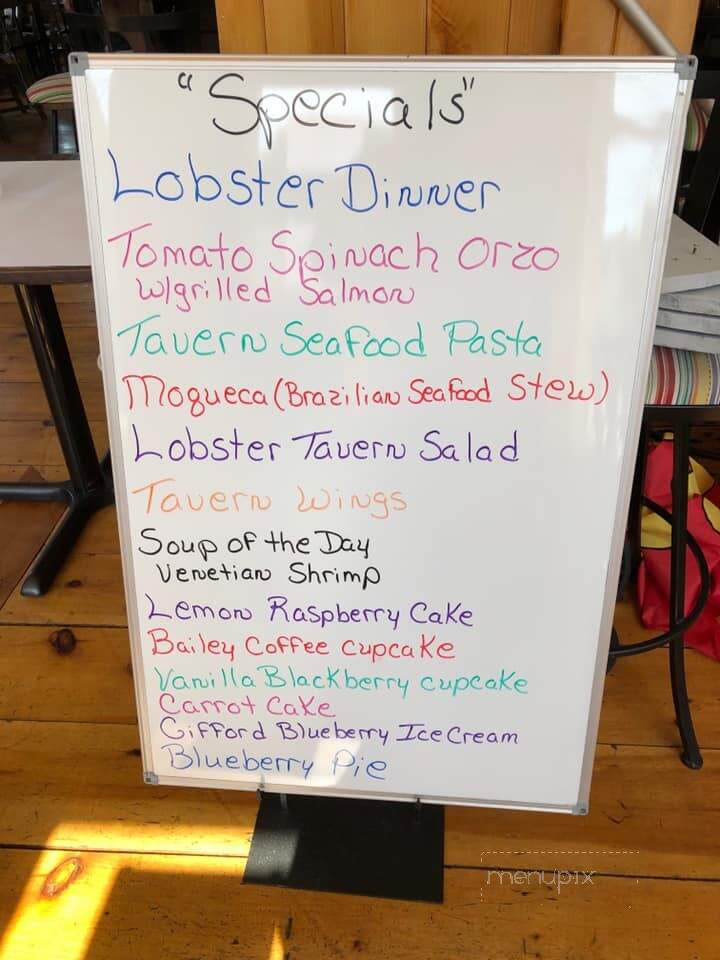 "Specials"
Lobster Dinner
Tomato Spinach Orzo
w/grilled Salmon
Tavern Seafood Pasta
Moqueca (Brazilian Seafood Stew)
Lobster Tavern Salad
Tavern Wings
Soup of the Day
Venetian Shrimp
Lemon Raspberry Cake
Bailey Coffee Cupcake
Vanilla Blackberry Cupcake
Carrot Cake
Gifford Blueberry Ice Cream
Blueberry Pie
menupix